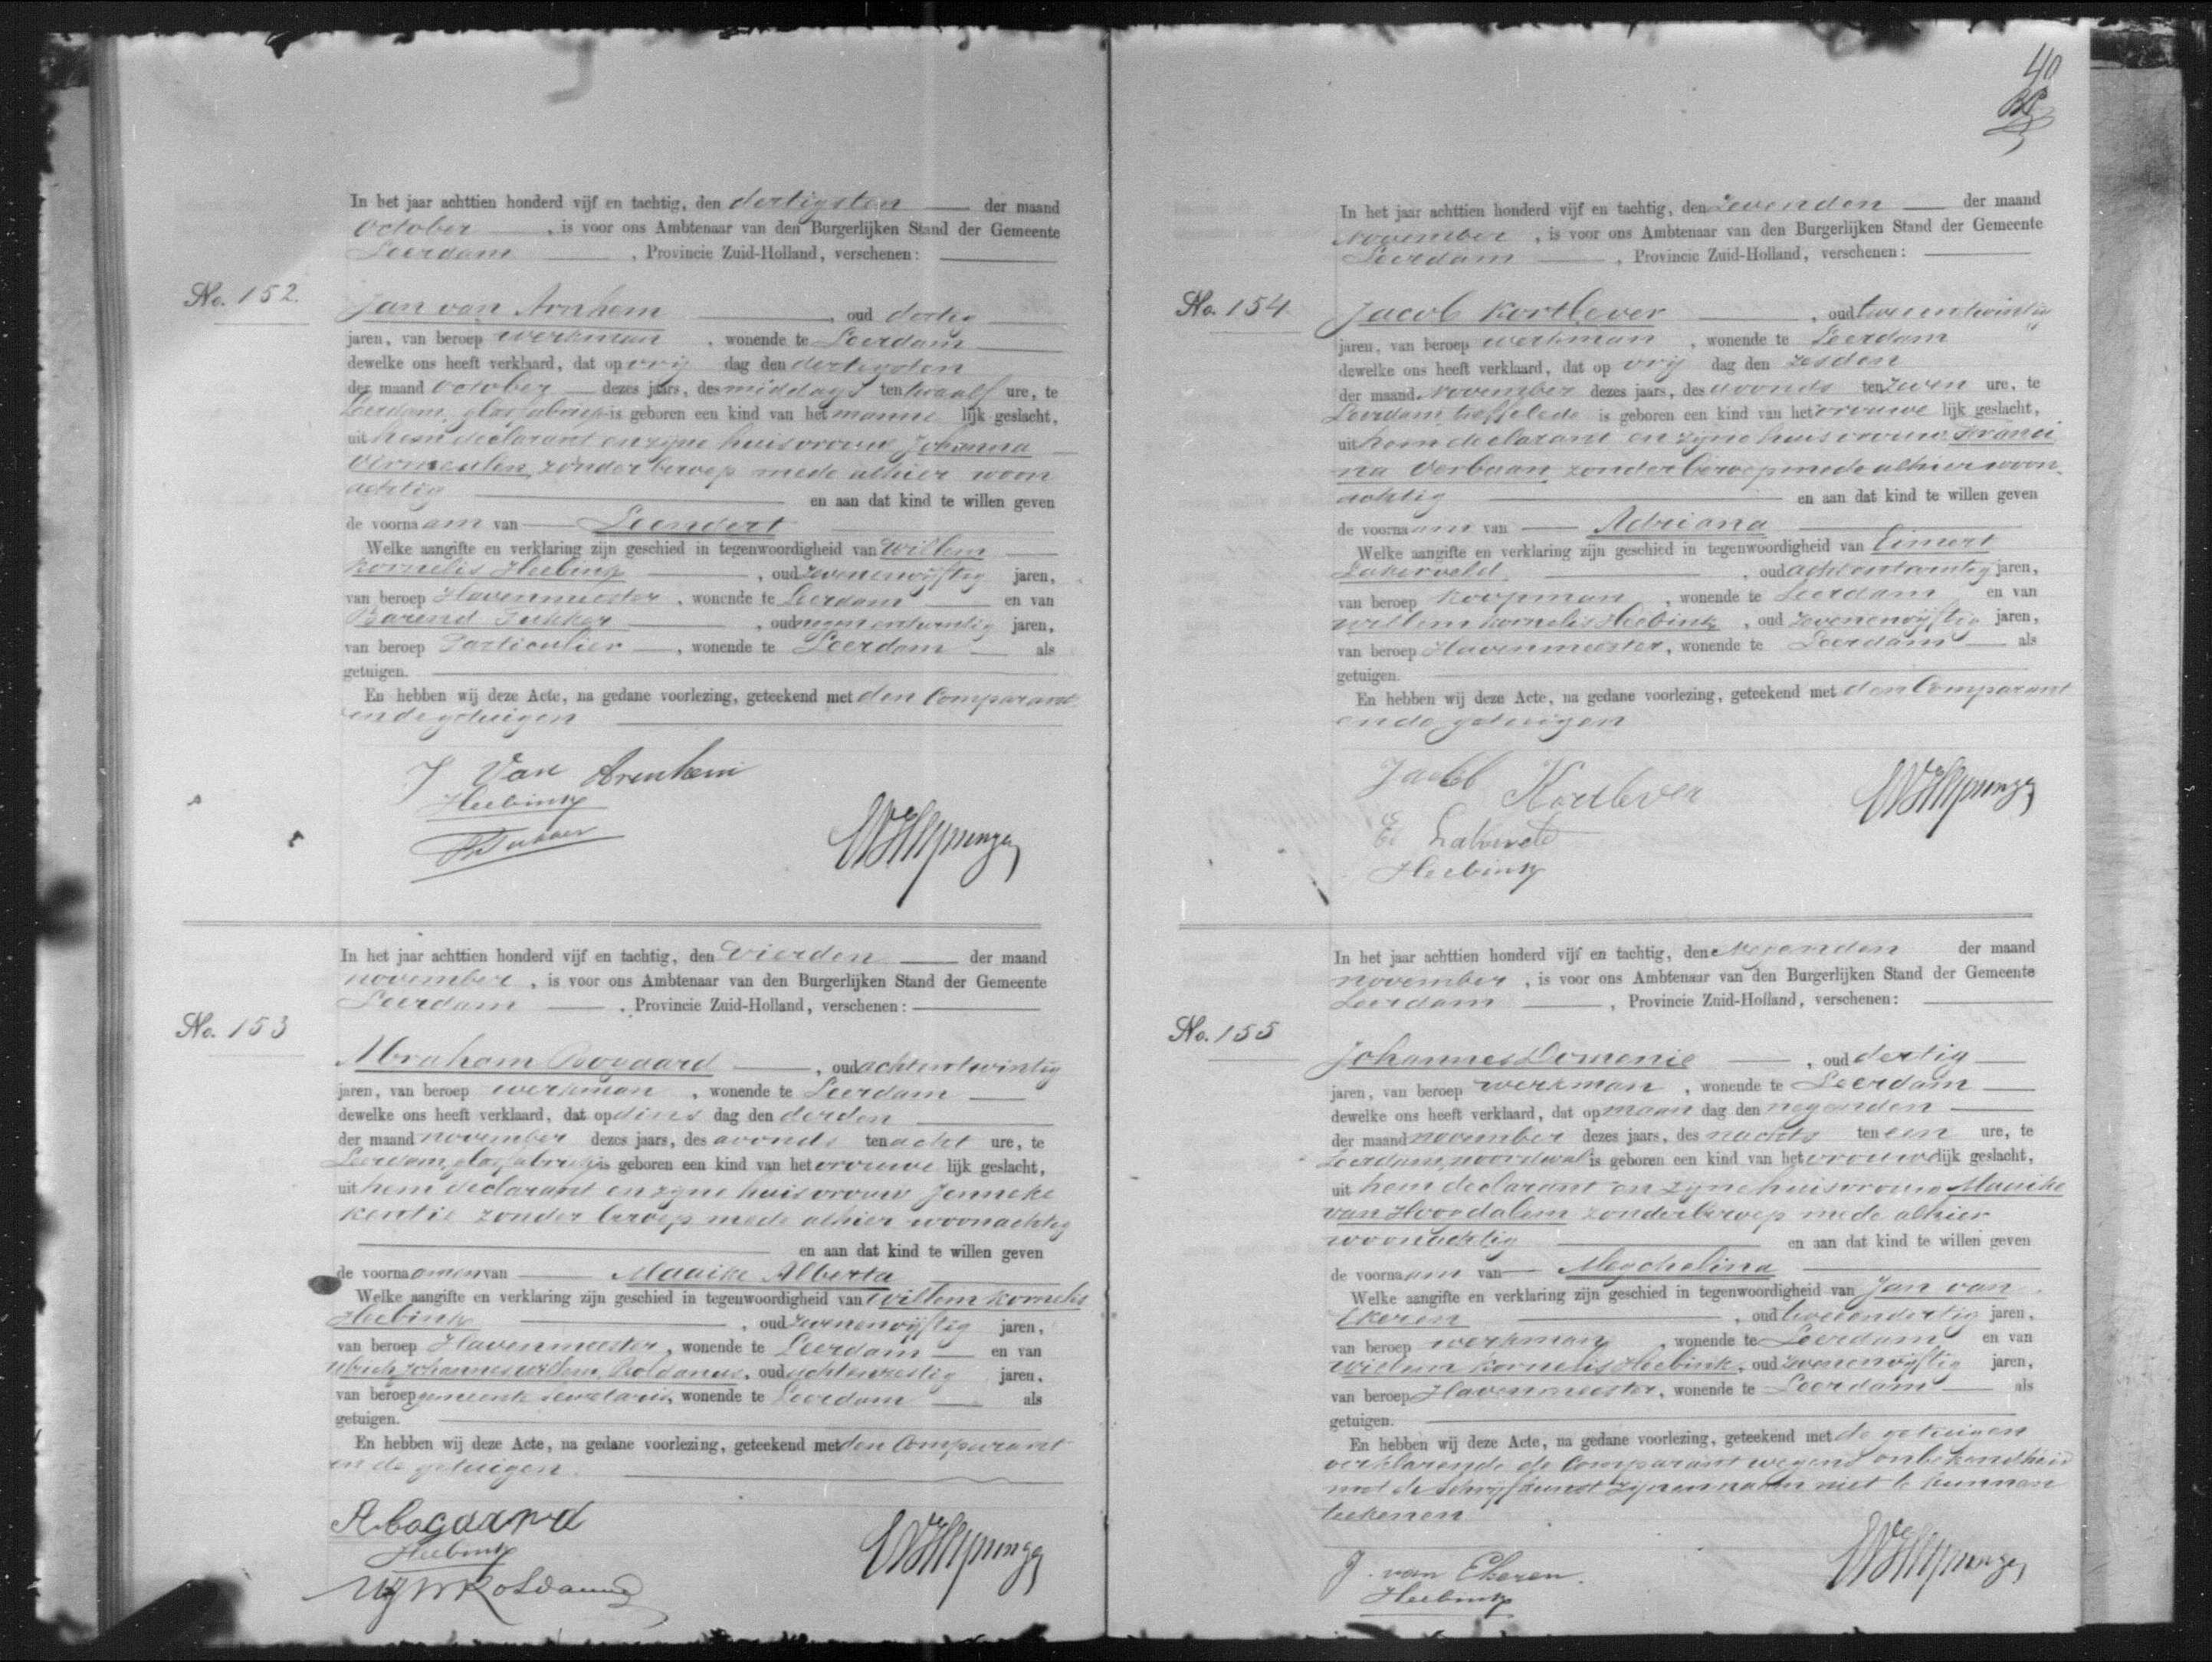 In het jaar achttien honderd vijf en tachtig, den dertigsten der maand
October, is voor ons Ambtenaar van den Burgerlijken Stand der Gemeente
Leerdam, Provincie Zuid-Holland, verschenen:
No. 152.
Jan van Arnhem, oud dertig
jaren, van beroep werkman, wonende te Leerdam
dewelke ons heeft verklaard, dat op vrij dag den dertigsten
der maand October dezes jaars, des middags ten twaalf ure, te
Leerdam, glasfabriek is geboren een kind van het manne lijk geslacht,
uit hem declarant en zijne huisvrouw Johanna
Vermeulen, zonder beroep mede alhier woon
achtig en aan dat kind te willen geven
de voornaam van Leendert
Welke aangifte en verklaring zijn geschied in tegenwoordigheid van Willem
Kornelis Heebink, oud zevenenvijftig jaren,
van beroep Havenmeester, wonende te Leerdam en van
Barend Fukker, oud negenentwintig jaren,
van beroep Particulier, wonende te Leerdam als
getuigen.
En hebben wij deze Acte, na gedane voorlezing, geteekend met den Comparant
en de getuigen
J Van Arenhem
Heebink
No. 153
In het jaar achttien honderd vijf en tachtig, den Vierden der maand
november, is voor ons Ambtenaar van den Burgerlijken Stand der Gemeente
Leerdam, Provincie Zuid-Holland, verschenen:
Abraham Bogaard, oud achtentwintig
jaren, van beroep werkman, wonende te Leerdam
dewelke ons heeft verklaard, dat op dins dag den derden
der maand november dezes jaars, des avonds ten acht ure, te
Leerdam, glasfabriek is geboren een kind van het vrouwe lijk geslacht,
uit hem declarant en zijne huisvrouw Jenneke
Kentie zonder beroep mede alhier woonachtig
en aan dat kind te willen geven
de voornaamen van Maaike Alberta
Welke aangifte en verklaring zijn geschied in tegenwoordigheid van Willem Kornelis
Heebink, oud zevenenvijftig jaren,
van beroep Havenmeester, wonende te Leerdam en van
Ulrich Johannes Willem Roldanus, oud achtenzestig jaren,
van beroep gemeente secretaris, wonende te Leerdam als
getuigen.
En hebben wij deze Acte, na gedane voorlezing, geteekend met den Comparant
en de getuigen.
A Bogaard
Heebink
UJWRoldanus
40
In het jaar achttien honderd vijf en tachtig, den Zevenden der maand
November, is voor ons Ambtenaar van den Burgerlijken Stand der Gemeente
Leerdam, Provincie Zuid-Holland, verschenen:
No. 154
Jacob Kortlever, oud tweeentwintig
jaren, van beroep werkman, wonende te Leerdam
dewelke ons heeft verklaard, dat op vrij dag den zesden
der maand November dezes jaars, des avonds ten zeven ure, te
Leerdam is geboren een kind van het vrouwe lijk geslacht,
uit hem declarant en zijne huisvrouw Franci
na Verbaan zonder beroep mede alhier woon
achtig en aan dat kind te willen geven
de voornaam van Adriana
Welke aangifte en verklaring zijn geschied in tegenwoordigheid van Eimert
Lakerveld, oud achtentwintig jaren,
van beroep Koopman, wonende te Leerdam en van
Willem Kornelis Heebink, oud zevenenvijftig jaren,
van beroep Havenmeester, wonende te Leerdam als
getuigen.
En hebben wij deze Acte, na gedane voorlezing, geteekend met den Comparant
en de getuigen
Jacob Kortlever
E Lakerveld
Heebink
In het jaar achttien honderd vijf en tachtig, den Negenden der maand
november, is voor ons Ambtenaar van den Burgerlijken Stand der Gemeente
Leerdam, Provincie Zuid-Holland, verschenen:
No. 155
Johannes Domenie, oud dertig
jaren, van beroep werkman, wonende te Leerdam
dewelke ons heeft verklaard, dat op maan dag den negenden
der maand november dezes jaars, des nachts ten een ure, te
Leerdam, noordwal is geboren een kind van het vrouwelijk geslacht,
uit hem declarant en zijne huisvrouw Maaike
van Hoogdalem zonder beroep mede alhier
woonachtig en aan dat kind te willen geven
de voornaam van Mechelina
Welke aangifte en verklaring zijn geschied in tegenwoordigheid van Jan van
Ekeren, oud tweeendertig jaren,
van beroep werkman, wonende te Leerdam en van
Willem Kornelis Heebink, oud zevenenvijftig jaren,
van beroep Havenmeester, wonende te Leerdam als
getuigen.
En hebben wij deze Acte, na gedane voorlezing, geteekend met de getuigen
verklarende de Comparant wegens onbekendheid
met de schrijfkunst zijnen naam niet te kunnen
teekenen
J. van Ekeren.
Heebink